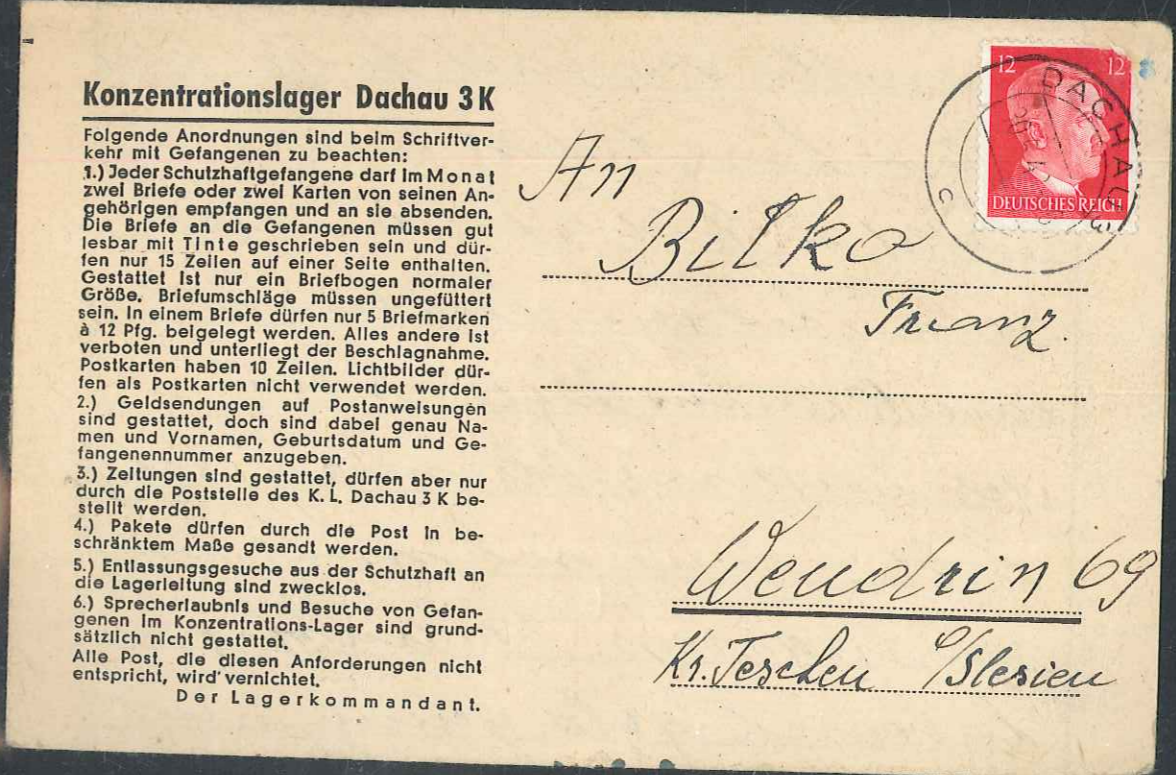 Konzentrationslager Dachau 3 K
Folgende Anordnungen sind beim Schriftver-
kehr mit Gefangenen zu beachten:
1.) Jeder Schutzhaftgefangene darf im Monat
zwei Briefe oder zwei Karten von seinen An-
gehörigen empfangen und an sie absenden.
Die Briefe an die Gefangenen müssen gut
lesbar mit Tinte geschrieben sein und dür-
fen nur 15 Zeilen auf einer Seite enthalten.
Gestattet ist nur ein Briefbogen normaler
Größe. Briefumschläge müssen ungefüttert
sein. In einem Briefe dürfen nur 5 Briefmarken
à 12 Pfg. beigelegt werden. Alles andere ist
verboten und unterliegt der Beschlagnahme.
Postkarten haben 10 Zeilen. Lichtbilder dür-
fen als Postkarten nicht verwendet werden.
2.) Geldsendungen auf Postanweisungen
sind gestattet, doch sind dabei genau Na-
men und Vornamen, Geburtsdatum und Ge-
fangenennummer anzugeben.
3.) Zeitungen sind gestattet, dürfen aber nur
durch die Poststelle des K. L. Dachau 3 K be-
stellt werden.
4.) Pakete dürfen durch die Post in be-
schränktem Maße gesandt werden.
5.) Entlassungsgesuche aus der Schutzhaft an
die Lagerleitung sind zwecklos.
6.) Sprecherlaubnis und Besuche von Gefan-
genen im Konzentrations-Lager sind grund-
sätzlich nicht gestattet.
Alle Post, die diesen Anforderungen nicht
entspricht, wird vernichtet.
Der Lagerkommandant.
12 12
DEUTSCHES REICH
DACHAU 3
c
An
Bilko
Franz.
Wendrin 69
Kr. Teschen O/Slesien